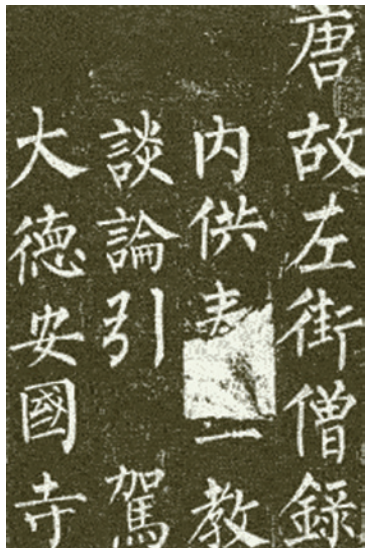 唐故左街僧録
内供教
談論引 駕
大徳安國寺